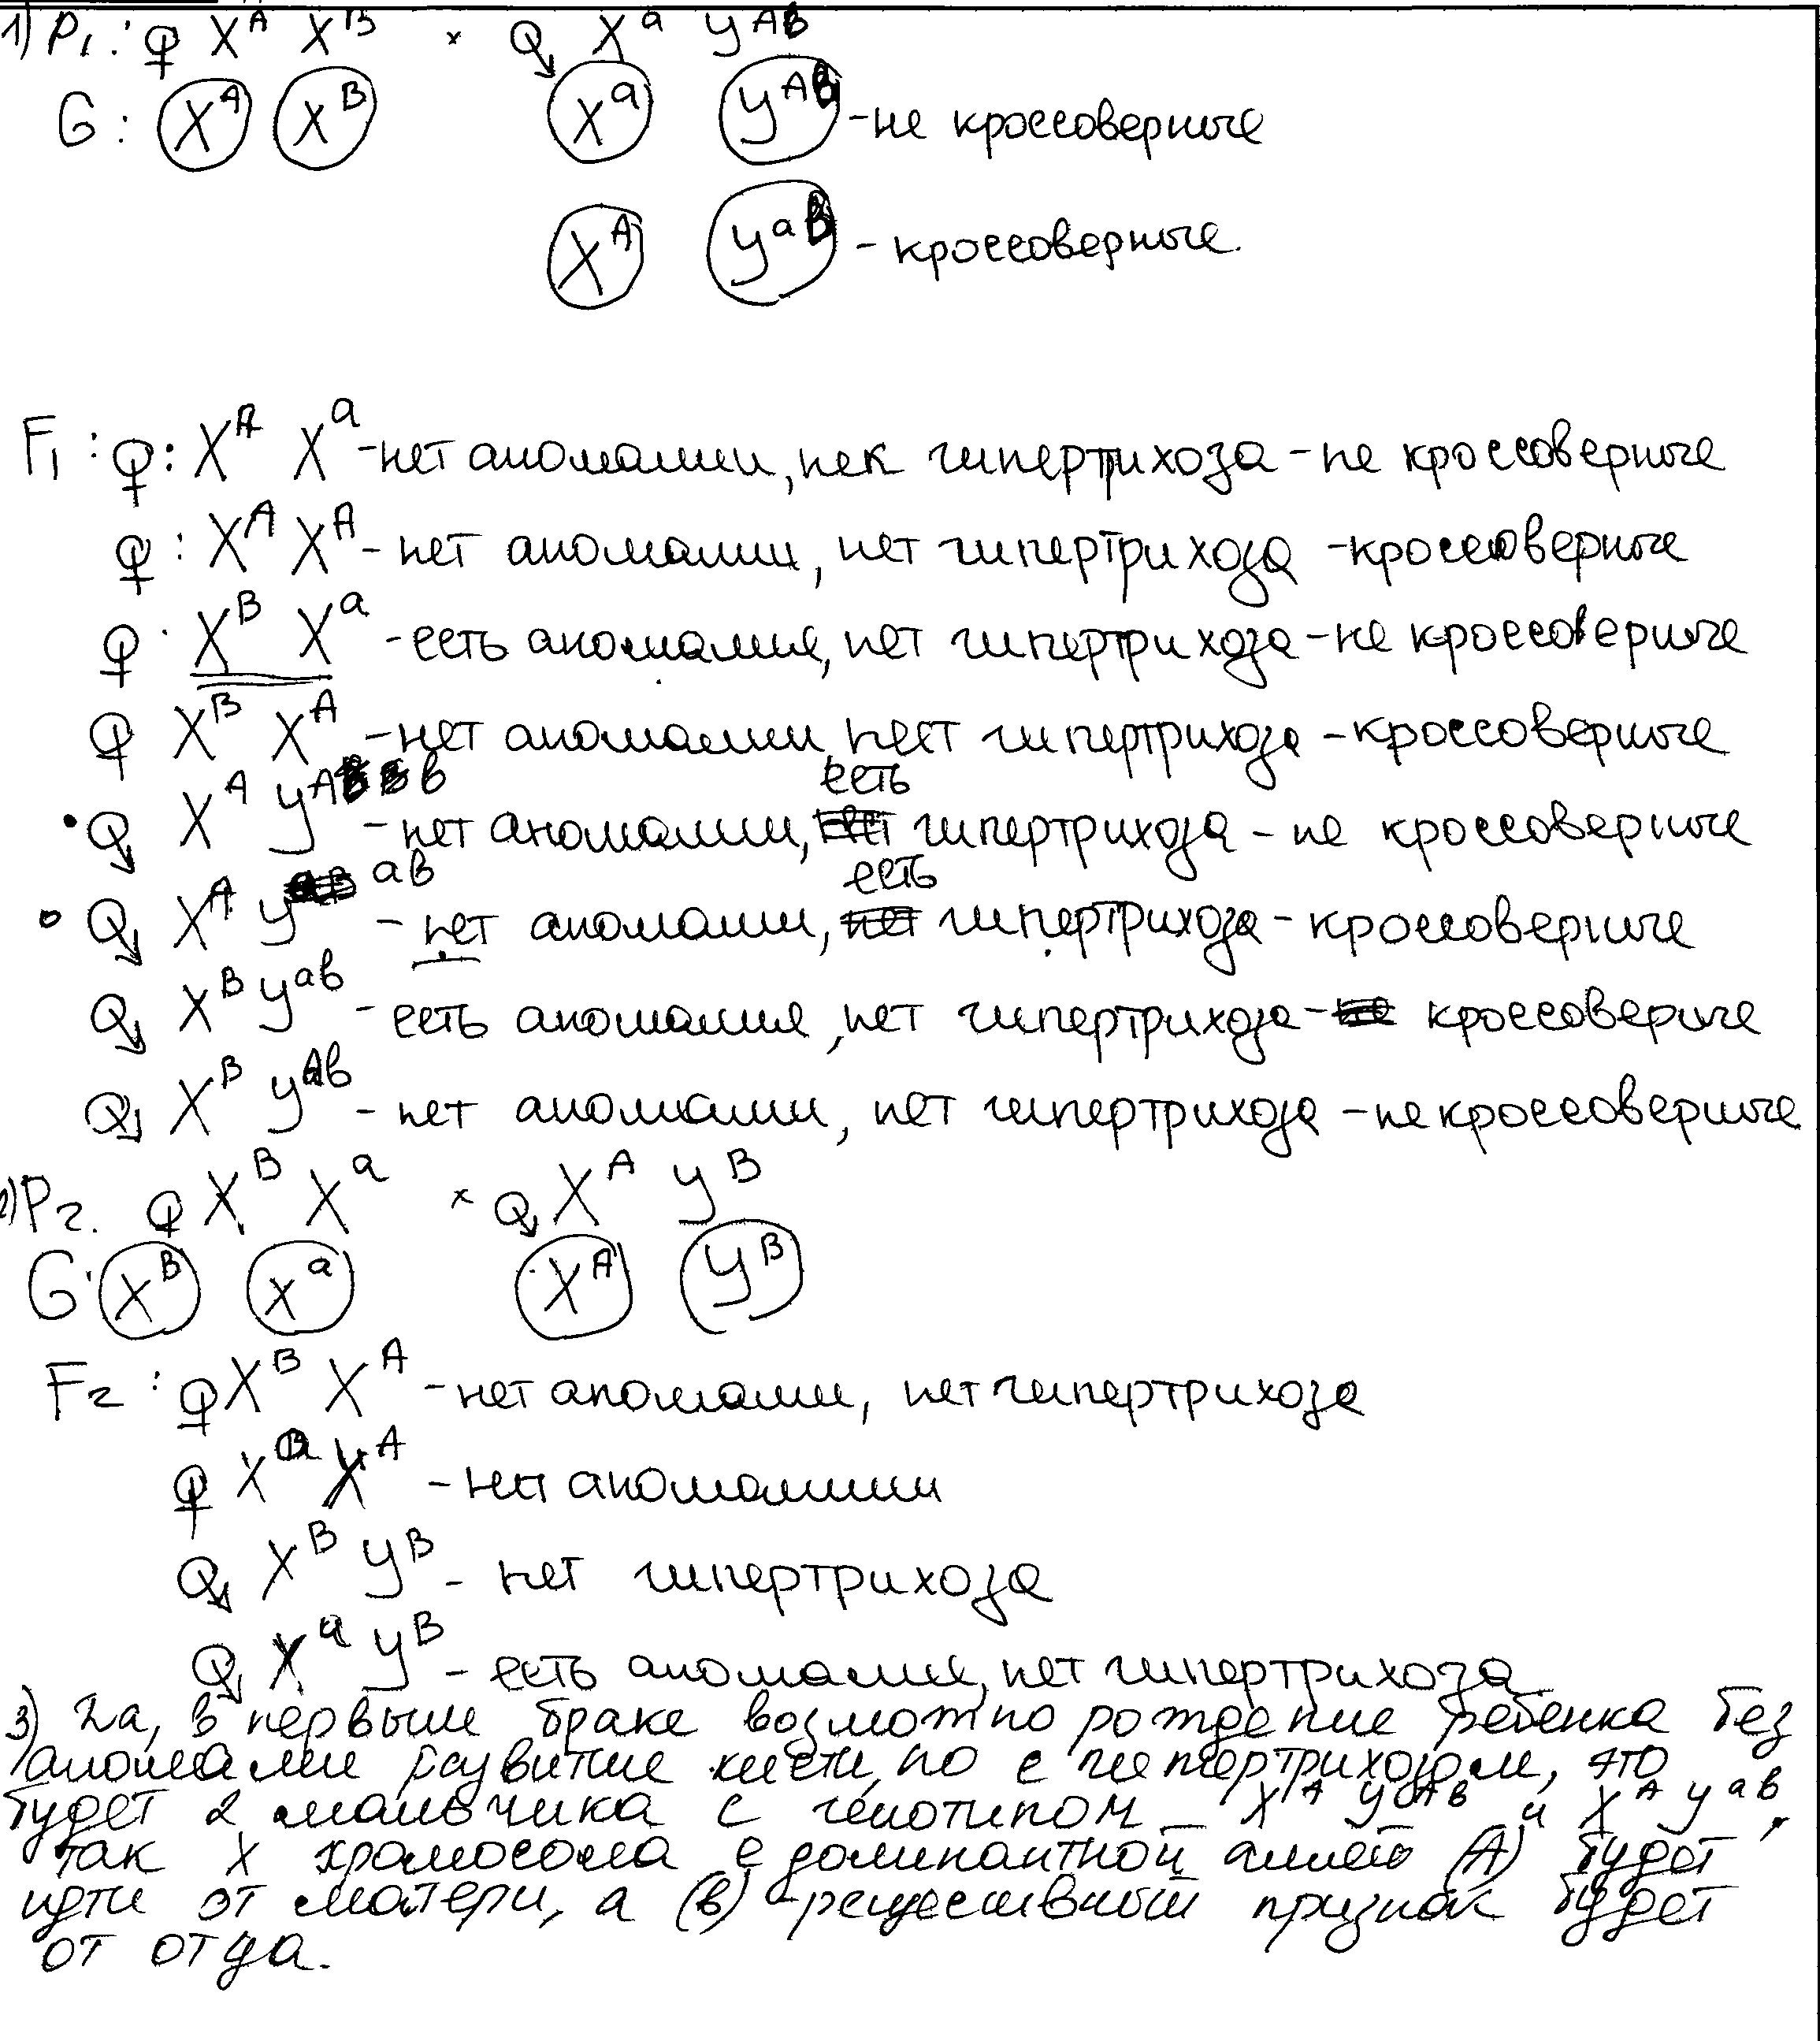 1) P₁: ♀ Xᴬ Xᴮ × ♂ Xᵃ Yᴬᵇ
G: Xᴬ Xᴮ Xᵃ Yᴬᵇ - не кроссоверные
Xᴬ Yᵃᵇ - кроссоверные.
F₁: ♀: Xᴬ Xᵃ - нет аномалии, нек гипертрихоза - не кроссоверные
♀: Xᴬ Xᴬ - нет аномалии, нет гипертрихоза - кроссоверные
♀: Xᴮ Xᵃ - есть аномалия, нет гипертрихоза - не кроссоверные
♀ Xᴮ Xᴬ - нет аномалии, нест гипертрихоза - кроссоверные
есть
• ♂ Xᴬ Yᴬᵇ - нет аномалии, гипертрихоза - не кроссоверные
есть
• ♂ Xᴬ Yᵃᵇ - нет аномалии, нет гипертрихоза - кроссоверные
♂ Xᴮ Yᵃᵇ - есть аномалия, нет гипертрихоза - не кроссоверные
♂ Xᴮ Yᴬᵇ - нет аномалии, нет гипертрихоза - не кроссоверные
2) P₂. ♀ Xᴮ Xᵃ × ♂ Xᴬ Yᴮ
G: Xᴮ Xᵃ Xᴬ Yᴮ
F₂: ♀ Xᴮ Xᴬ - нет аномалии, нет гипертрихоза
♀ Xᵃ Xᴬ - нет аномалиии
♂ Xᴮ Yᴮ - нет гипертрихоза
♂ Xᵃ Yᴮ - есть аномалия, нет гипертрихоза
3) Да, в первым браке возможно рождение ребенка без
аномалии развитие кисти, но с гипертрихозом, это
будет 2 мальчика с генотипом Xᴬ Yᴬᵇ и Xᴬ Yᵃᵇ,
так X хромосома с доминантной аллею (A) будет
идти от матери, а (в) - рецессивный признак будет
от отца.